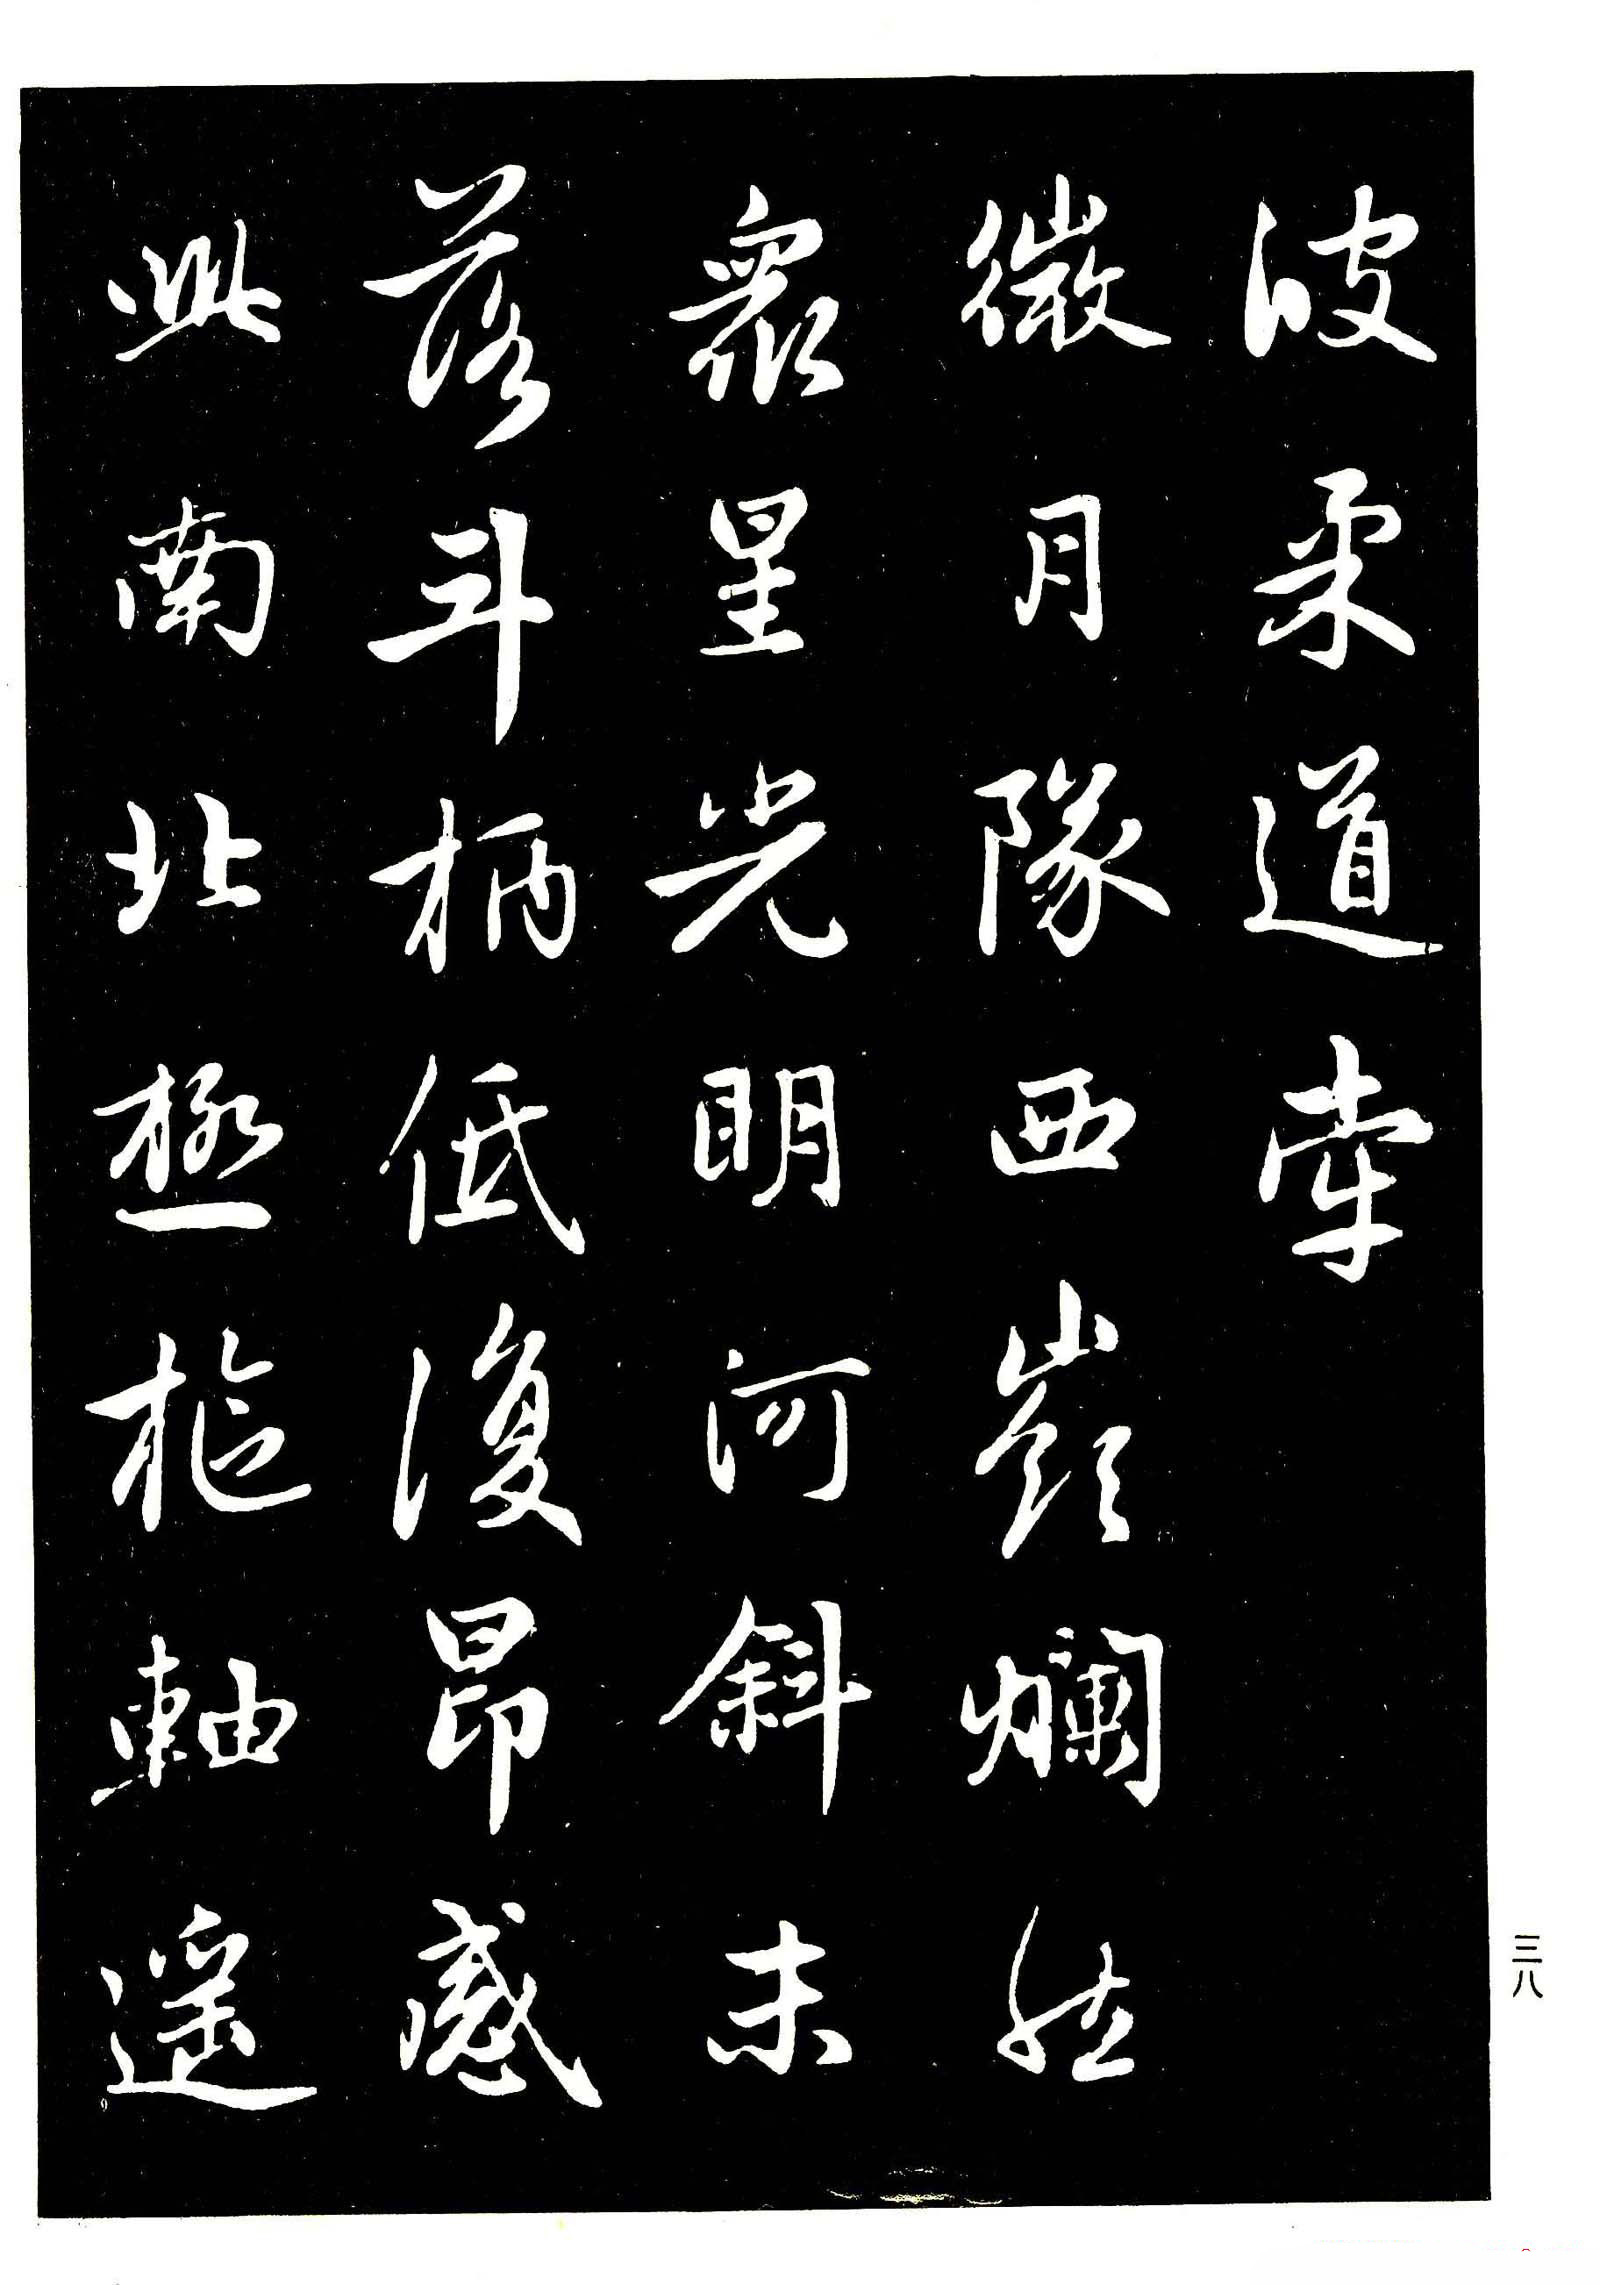 波柔道牽
微月隊西嶺爛然
衆星光明河斜未
落斗柄低復昂感
此南北極樞軸遥
三八